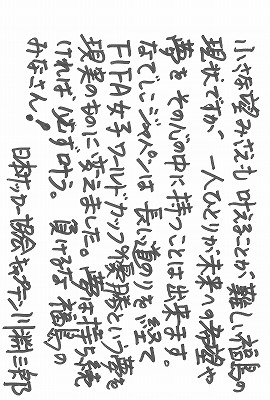 小さな望みさえも叶えることが難しい福島の
現状ですが、一人ひとりが未来への希望や
夢をその心の中に持つことは出来ます。
なでしこジャパンは長い道のりを経て
FIFA女子ワールドカップ優勝という夢を
現実のものに変えました。夢は持ち続
ければ必ず叶う。負けるな福島の
みなさん！
日本サッカー協会キャプテン川淵三郎